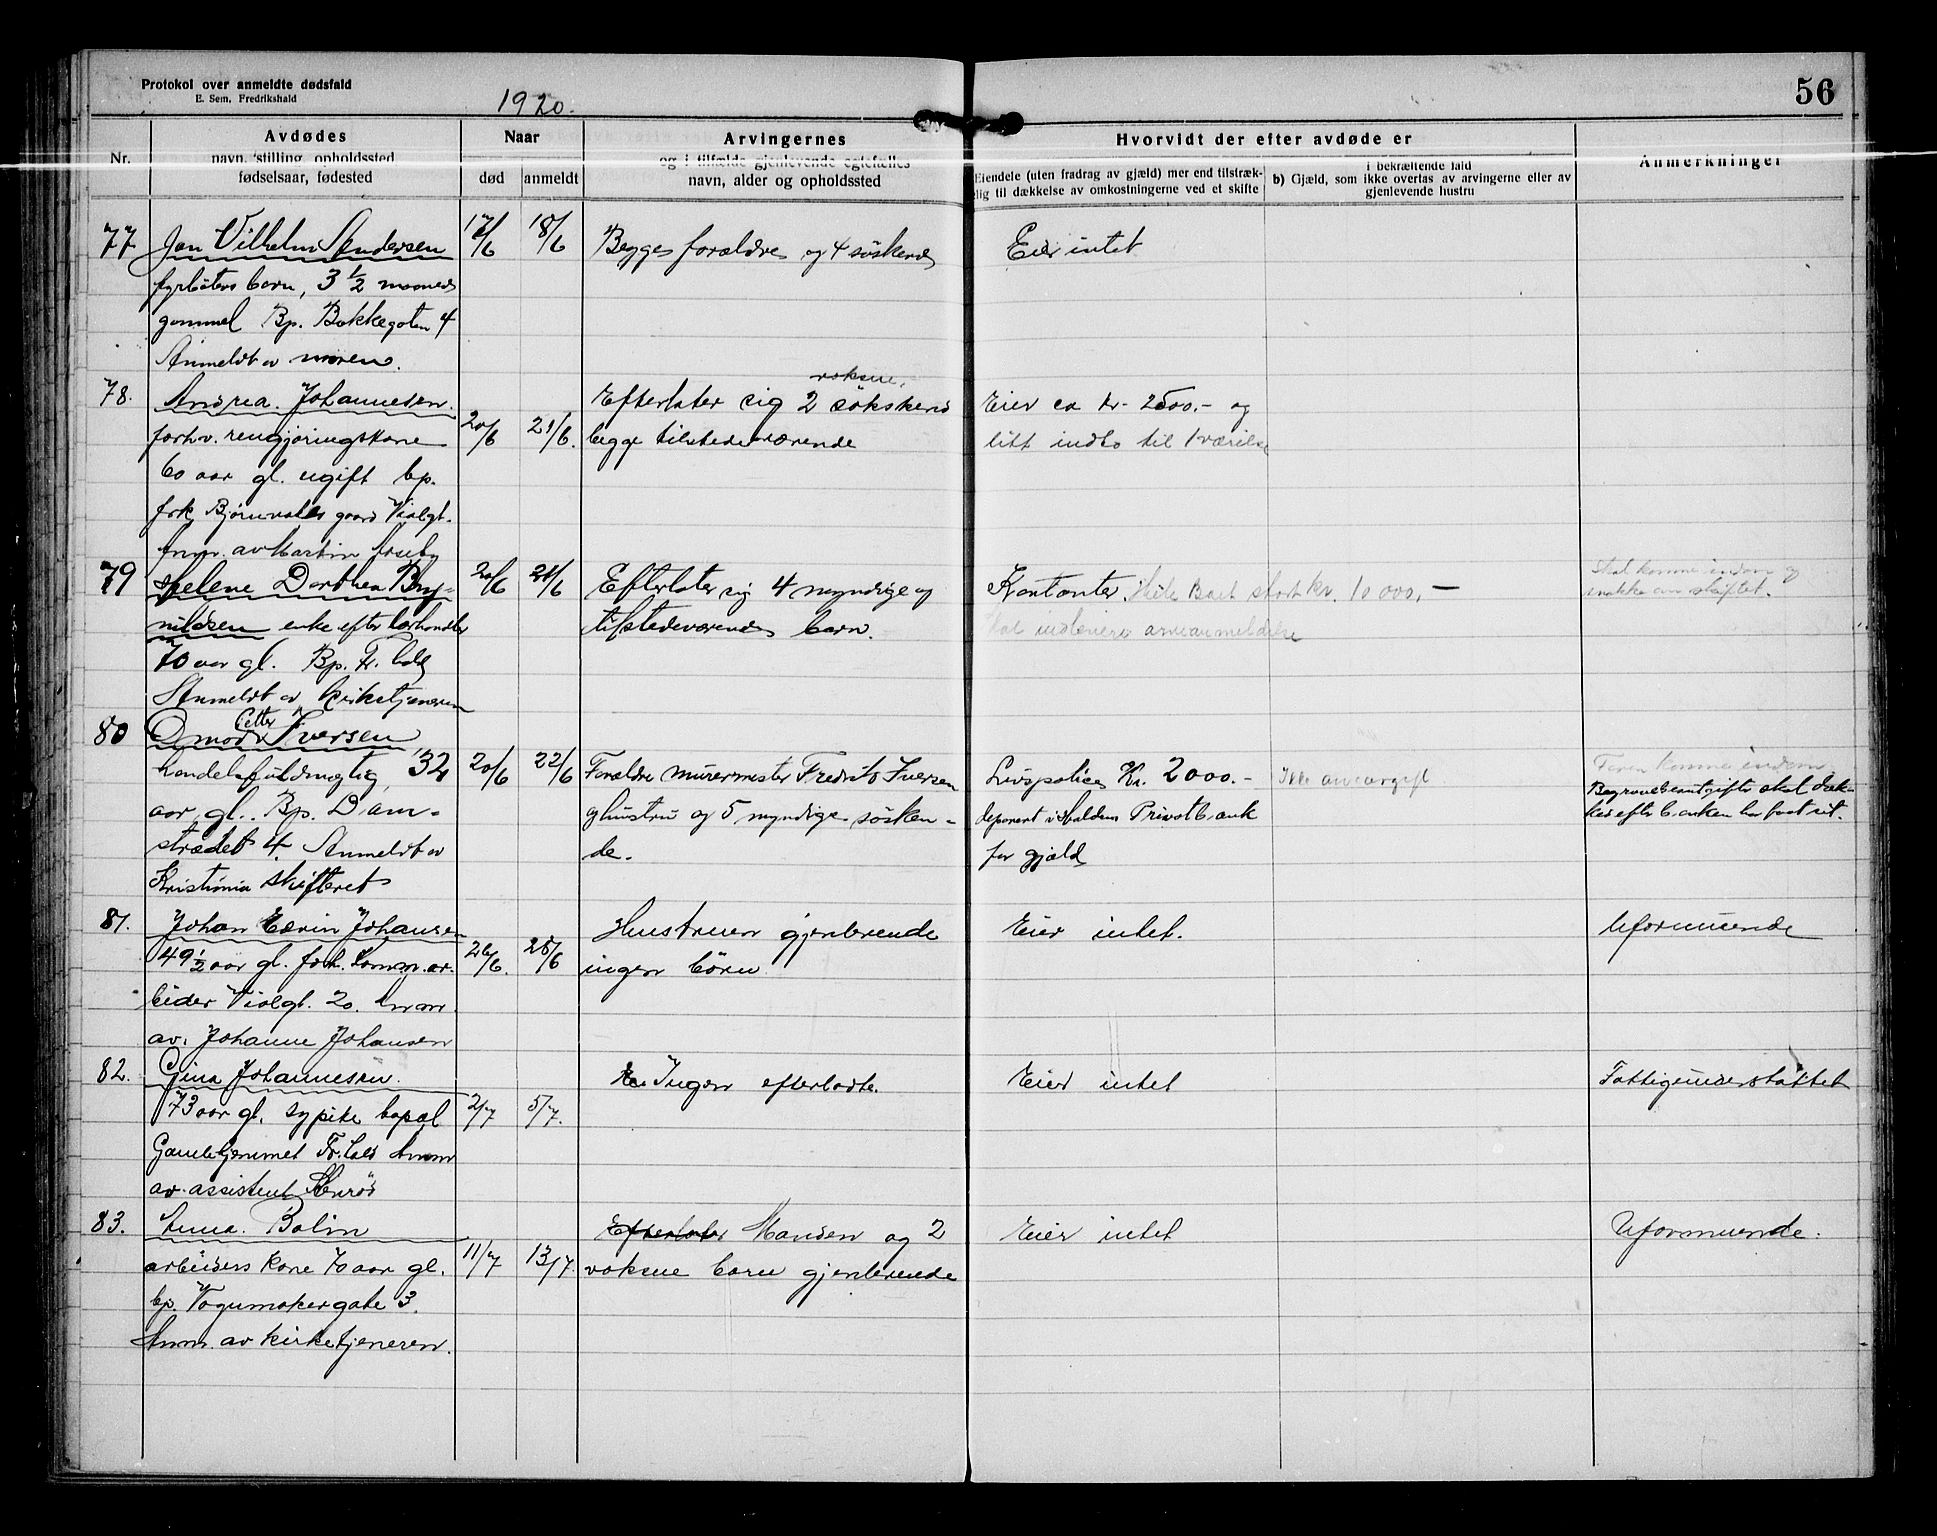 Protokol over anmeldte dødsfald
E. Sem, Fredrikshald
1920.
56
Nr.
Avdødes
navn, stilling, opholdssted
fødselsaar, fødested
Naar
død
anmeldt
Arvingernes
og i tilfælde gjenlevende egtefælles
navn, alder og opholdssted
Hvorvidt der efter avdøde er
Eiendele (uten fradrag av gjæld) mer end tilstræk-
elig til dækkelse av omkostningerne ved et skifte
i bekræftende fald
b) Gjæld, som ikke overtas av arvingerne eller av
gjenlevende hustru
Anmerkninger
77
Jan Vilhelm Andersen
fyrbøters barn, 3 1/2 maaneds
gammel Bp. Bakkegaten 4
Anmeldt av moren.
17/6
18/6
Begge forældre og 4 søskende
Eier intet
78.
Andrea Johannesen.
forhv. rengjøringskone
60 aar gl. ugift bp.
frk. gaard Violgt.
Anm. av Martin
20/6
21/6.
voksne,
Efterlater sig 2 søskend
begge tilstedeværende
Eier ca kr. 2500.- og
litt indbo til 1 værelse
79
Helene Dorthea Bry-
nildsen enke efter
70 aar gl. Bp. Fr.hald
Anmeldt av kirketjeneren
20/6
21/6
Efterlater sig 4 myndige og
tilstedeværende barn.
Kontanter. kr. 10000,—
Skal indlevere arveanmeldelse
Skal komme indom og
snakke om skiftet.
80
Omar Petter Iversen
handelsfuldmægtig, 32
aar gl. Bp. Dam-
strædet 4. Anmeldt av
Kristiania skifteret
20/6
22/6
Forældre murermester Iversen
g hustru og 5 myndige søsken-
de.
Livspolice Kr. 2000.-
deponert i Haldens Privatbank
for gjæld
Ikke arveavgift
Faren komme indom
Begravelsesutgifter skal dæk-
kes efter banken har faat sit.
81.
Johan Edvin Johansen
49 1/2 aar gl. forh. ar-
beider Violgt. 20. Anm.
av. Johanne Johansen
26/6.
28/6
Hustruen gjenlevende
ingen børn
Eier intet.
Uformuende
82.
Gina Johannesen.
73 aar gl. sypike bopæl
Gamlehjemmet Fr.hald Anm
av assistent
2/7
5/7.
Ingen efterladte.
Eier intet
Fattigunderstøttet
83.
Anna Bolin
arbeiders kone 70 aar gl.
bp. Vognmakergate 3.
Anm. av kirketjeneren.
11/7
13/7.
Efterlater Manden og 2
voksne barn gjenlevende
Eier intet
Uformuende.